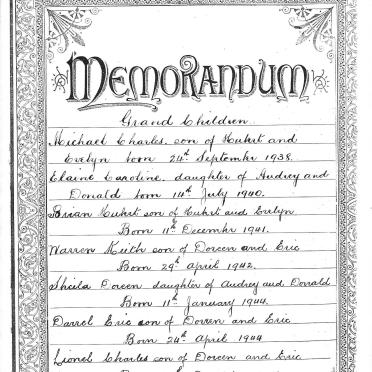 MEMORANDUM
Grand Children
Michael Charles, son of Hubert and
Evelyn born 24th September 1938.
Elaine Caroline, daughter of Audrey and
Donald born 14th July 1940.
Brian Hubert son of Hubert and Evelyn
Born 11th December 1941.
Warren Keith son of Doreen and Eric
Born 29th April 1942.
Sheila Doreen daughter of Audrey and Donald
Born 11th January 1944.
Darrel Eric son of Doreen and Eric
Born 24th April 1944
Lionel Charles son of Doreen and Eric